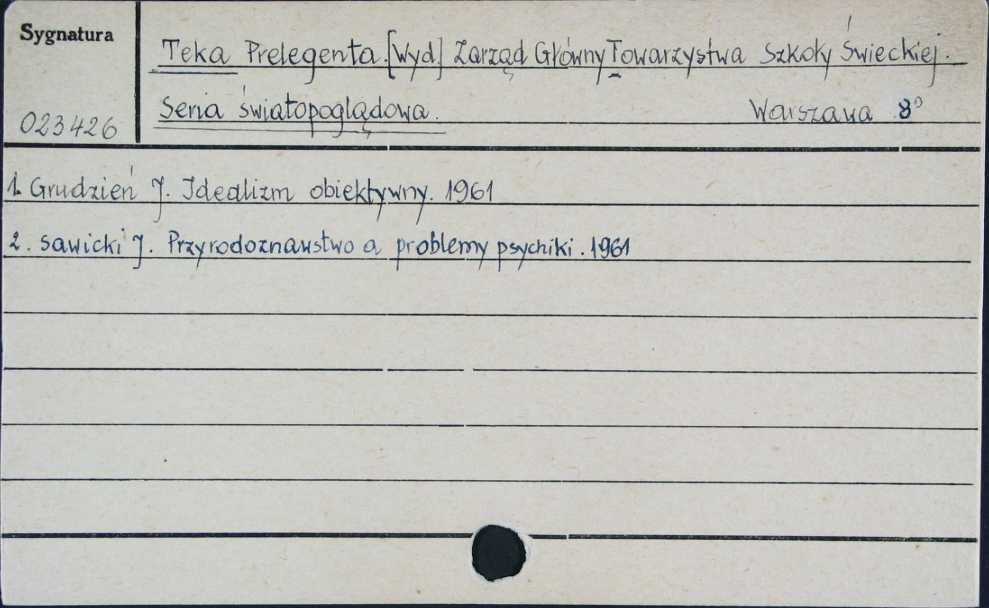 Sygnatura
Teka Prelegenta. [Wyd] Zarząd Główny Towarzystwa Szkoły Świeckiej.
023426
Seria światopoglądowa. Warszawa 8°
1. Grudzień J. Idealizm obiektywny. 1961
2. Sawicki J. Przyrodoznawstwo a problemy psychiki. 1961